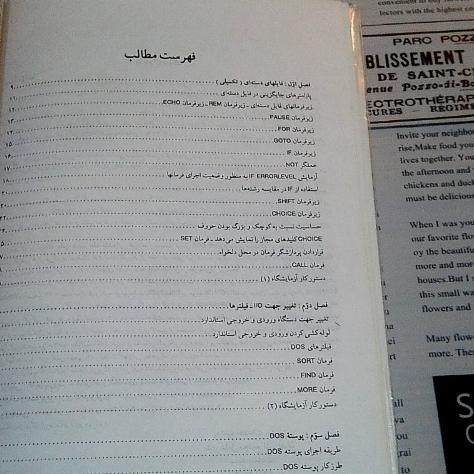 فهرست مطالب
فصل اول : فایلهای دسته‌ای ( تکمیلی ) ۹
پارامترهای جایگزینی در فایل دسته‌ای ۱۱
زیرفرمانهای فایل دسته‌ای - زیرفرمان REM - زیرفرمان ECHO
زیرفرمان PAUSE
زیرفرمان FOR
زیرفرمان GOTO
زیرفرمان IF
عملگر NOT
آزمایش IF ERRORLEVEL به منظور رضعیت اجرای فرمانها
استفاده از IF در مقایسه رشته‌ها
زیرفرمان SHIFT
زیرفرمان CHOICE
حساسیت نسبت به کوچک و بزرگ بودن حروف
CHOICE کلیدهای مجاز را نمایش می‌دهد - فرمان SET
قراردادن پردازشگر فرمان در محل دلخواه
فرمان CALL
دستور کار آزمایشگاه (۱)
فصل دوم : تغییر جهت I/O - فیلترها
تغییر جهت دستگاه ورودی و خروجی استاندارد
لوله‌کشی کردن ورودی و خروجی استاندارد
فیلترهای DOS
فرمان SORT
فرمان FIND
فرمان MORE
دستور کار آزمایشگاه (۲)
فصل سوم : پوسته DOS
طریقه اجرای پوسته DOS
طرز کار پوسته DOS
lectors with the highest
PARC POZZ
BLISSEMENT
DE SAINT-C
enue Pozzo-di-Bo
ECTROTHÉRAP
CURES - REGIME
Invite your neighb
rise, Make food you
lives together. You
the afternoon and
chickens and duc
must be delicious
When I was you
our favorite flow
oy the beautifu
more and more
houses. But I s
this small wa
flowers and
Many flow
more. Ther